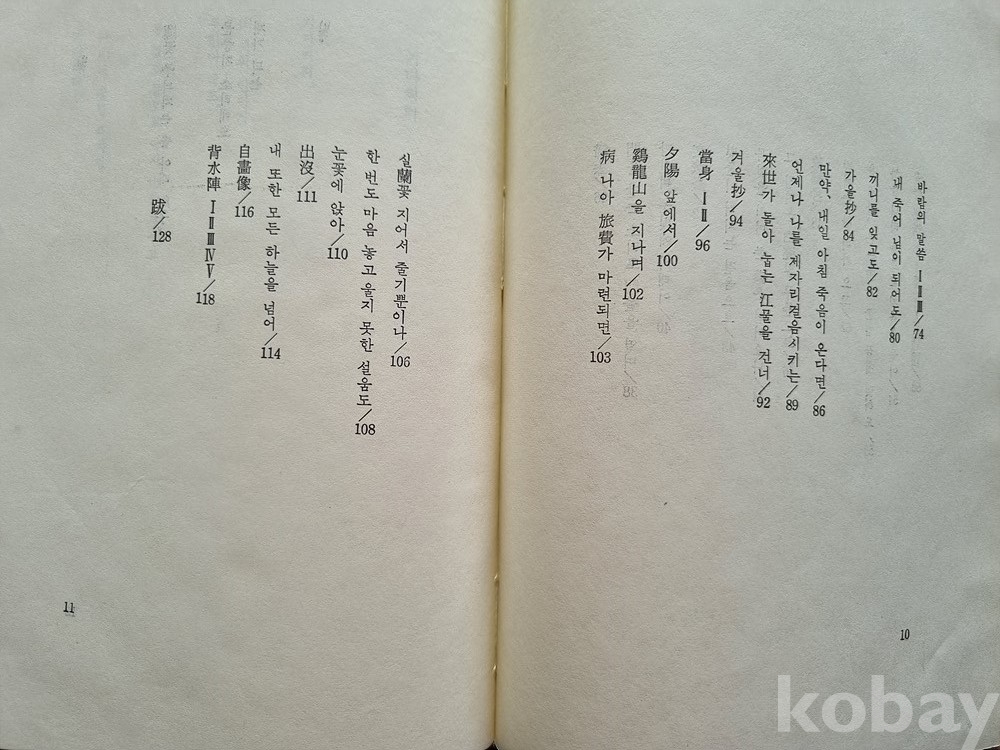 바람의 말씀 Ⅰ Ⅱ Ⅲ/74
내 죽어 님이 되어도/80
끼니를 잊고도/82
가을抄/84
만약, 내일 아침 죽음이 온다면/86
언제나 나를 제자리걸음시키는/89
來世가 돌아 눕는 江물을 건너/92
겨울抄/94
當身 Ⅰ Ⅱ/96
夕陽 앞에서/100
鷄龍山을 지나며/102
病 나아 旅費가 마련되면/103
10
실蘭꽃 지어서 줄기뿐이나/106
한 번도 마음 놓고 울지 못한 설움도/108
눈꽃에 앉아/110
出沒/111
내 또한 모든 하늘을 넘어/114
自畵像/116
背水陣 Ⅰ Ⅱ Ⅲ Ⅳ Ⅴ/118
跋/128
11
kobay